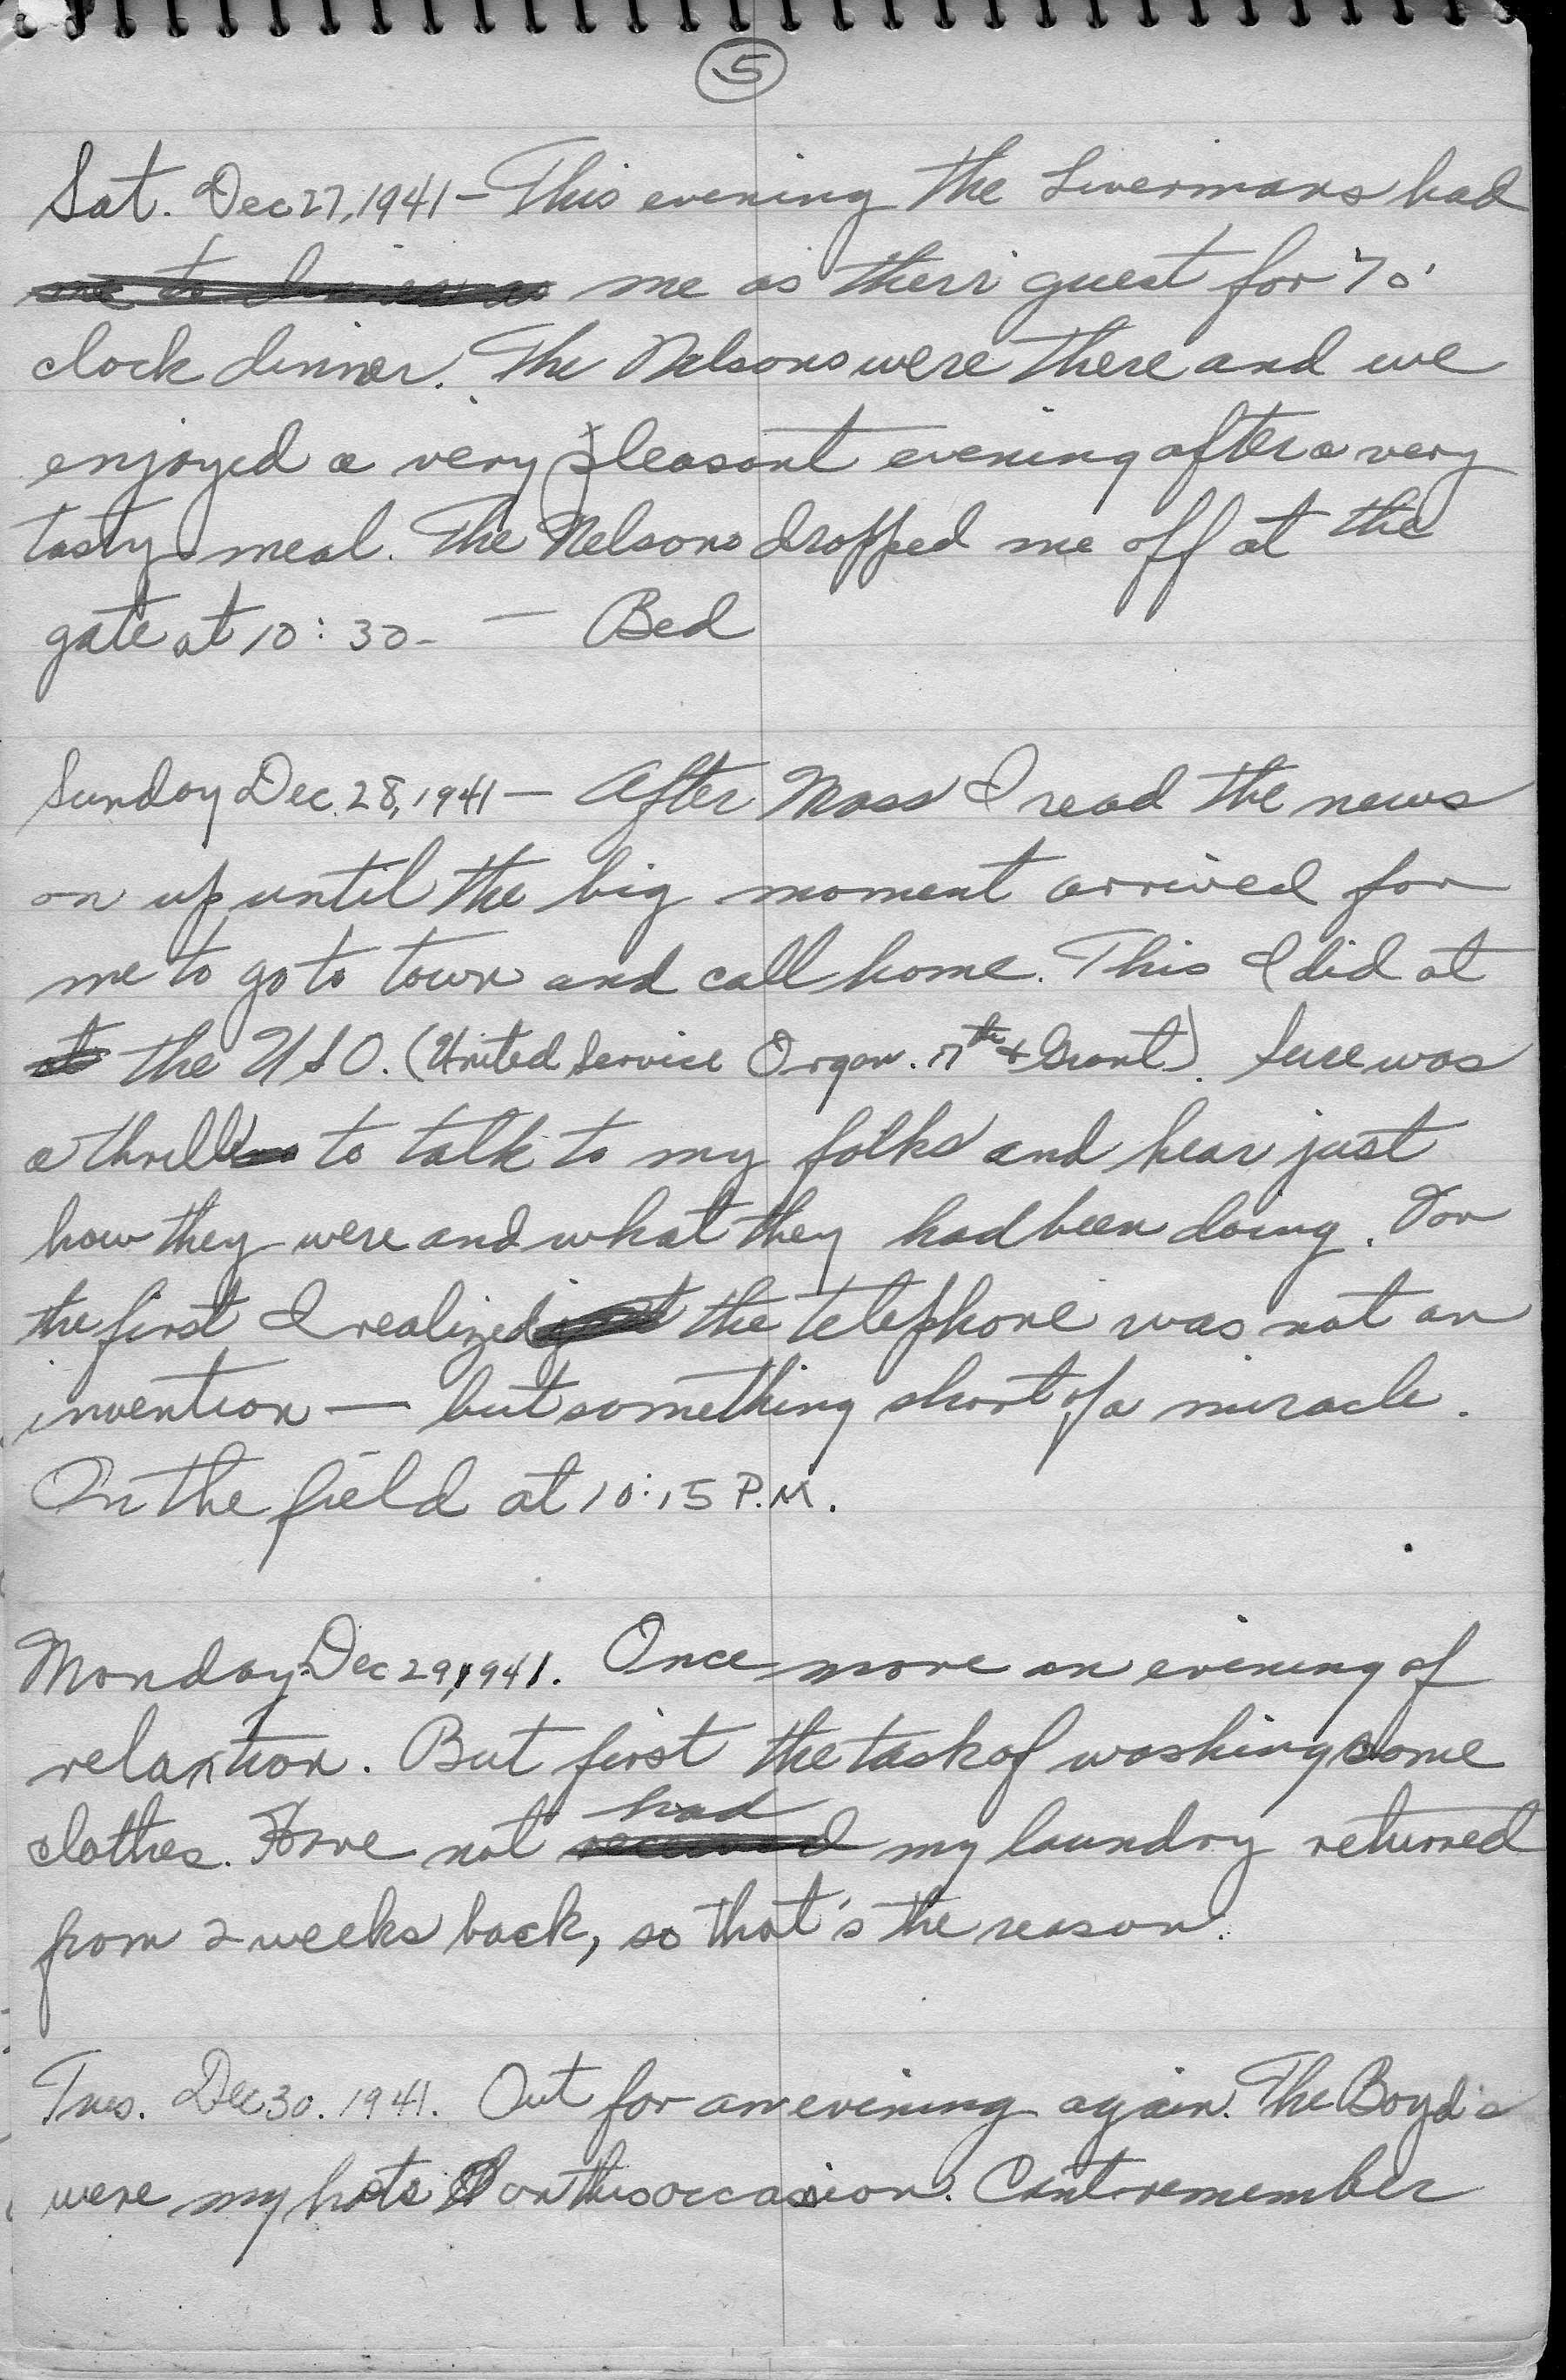 5
Sat. Dec 27, 1941 - This evening the Livermans had
me as their guest for 7 o'
clock dinner. The Nelsons were there and we
enjoyed a very pleasant evening after a very
tasty meal. The Nelsons dropped me off at the
gate at 10:30 - - Bed
Sunday Dec. 28, 1941 - After Mass I read the news
on up until the big moment arrived for
me to go to town and call home. This I did at
at the USO. (United Service Organ. 7th & Grant). Sure was
a thrill to talk to my folks and hear just
how they were and what they had been doing. For
the first I realized just the telephone was not an
invention — but something short of a miracle.
On the field at 10:15 P.M.
Monday Dec 29, 1941. Once more an evening of
relaxtion. But first the task of washing some
had
clothes. Have not received my laundry returned
from 2 weeks back, so that's the reason.
Tues. Dec 30. 1941. Out for an evening again. The Boyd's
were my hosts on this occasion. Can't remember